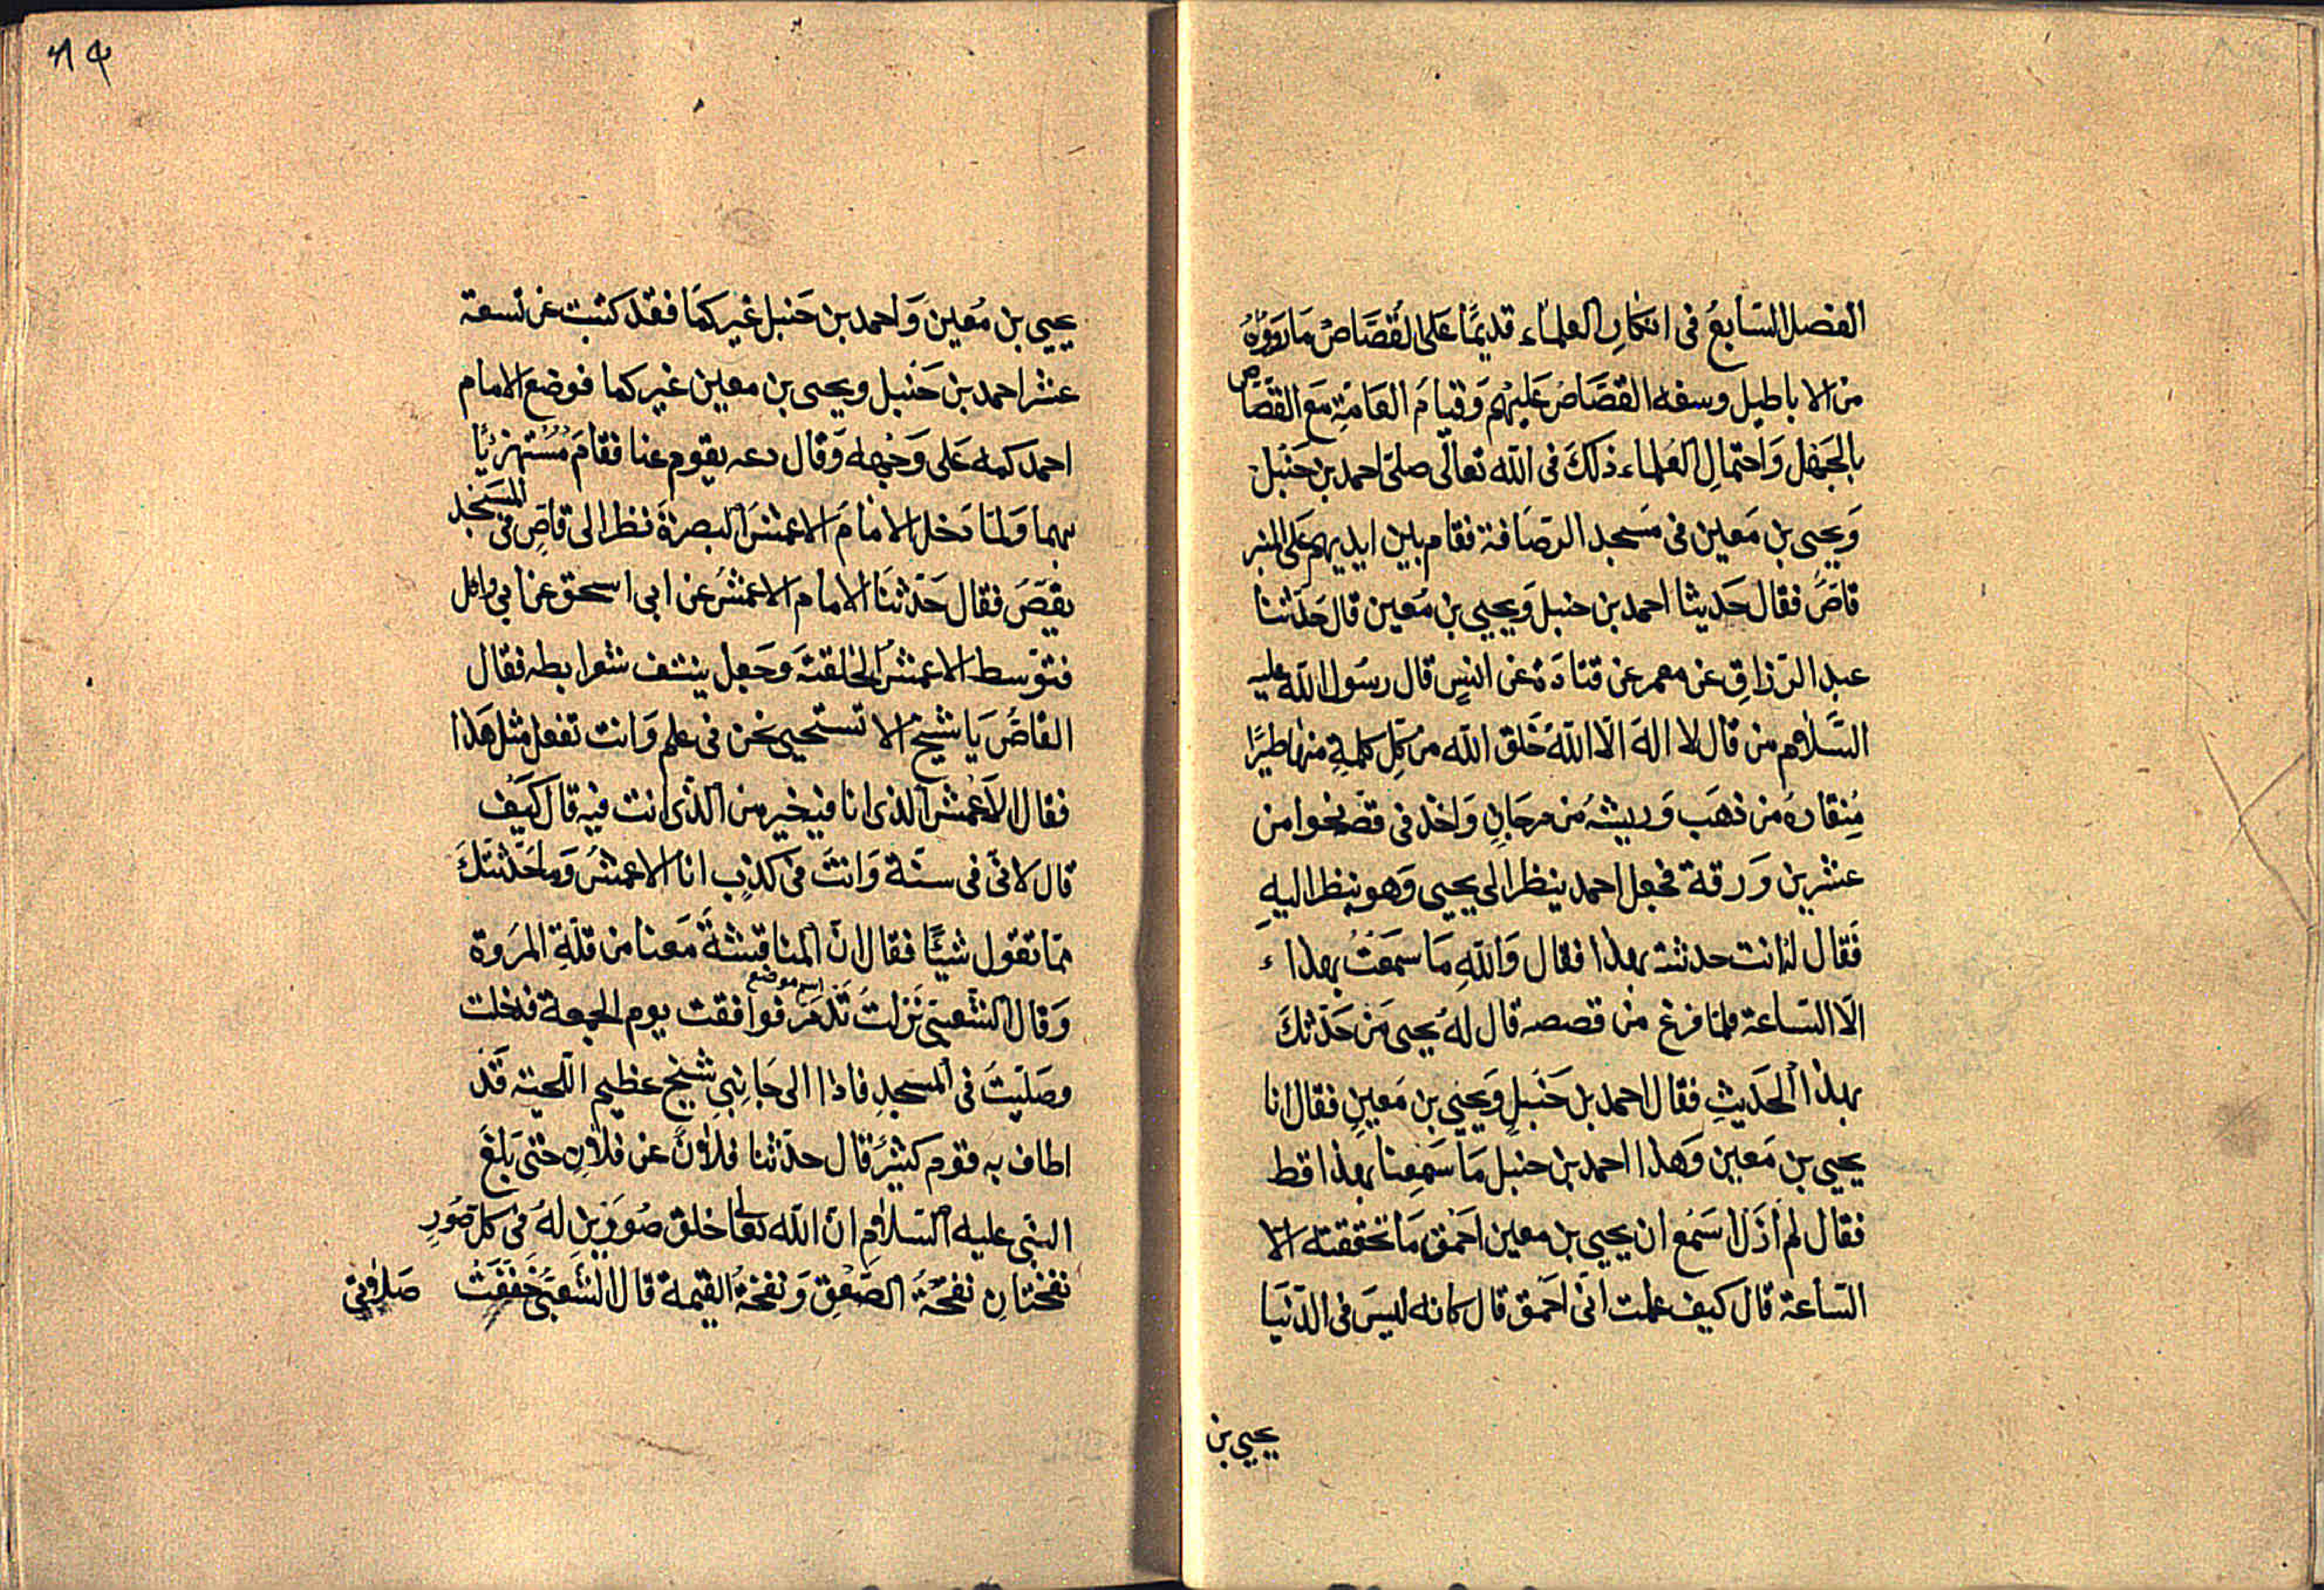 الفصل السّابعُ فى انكارِ العلمآء قديمًا عَلى القُصَّاصْ مَارَووْهُ
من الاباطيل وسفه القصَّاصْ عَليْهم وَقيامَ العَامّةِ مَعَ القصّاص
بالجَهْل وَاحتمالِ العُلماء ذَلكَ فى اللّه تعالٰى صلى احمد بن حَنْبل
وَيحيى بن مَعين فى مَسجد الرّصَافة فقام بين ايديهم عَلى المنبر
قاصٌ فقال حَديثا احمد بن حنبل وَيحيى بن مَعين قال حَدّثنا
عبد الرّزاق عن معمر عن قتادَة عَن انسٍ قال رسُول اللّه عليه
السَّلام من قال لا الهَ الّا اللّهُ خَلق اللّه من كلّ كلمةٍ منها طيرًا
مِنقارهُ من ذهَب وَريشهُ من مرجَانٍ وَاخذ فى قصّ نحوا من
عشرين وَرَقة فجعل احمد ينظر الى يحيى وَهو ينظر اليهِ
فَقال له انت حدثته بهذا فقال وَاللّهِ مَا سَمعَتُ بهذا ء
الّا السّاعة فلمّا فرغ من قصصه قال لهُ يحيى مَن حَدّثكَ
بهذا الحَديثِ فقال احمد بن حَنبلٍ وَيحيى بن مَعينٍ فقال انا
يحيى بن مَعين وَهذا احمد بن حنبل مَا سَمِعنا بهذا قط
فقال لم اَزَل اسَمْع ان يحيى بن معين احَمْق مَا تحققته الّا
السّاعة قال كيف علمت انّى احَمق قال كانه ليسَ فى الدّنيَا
يحيى بن
٨٤
يحيى بن مُعين وَاحمد بن حَنبل غير كمَا فقد كتبت عن تسعة
عشر احمد بن حَنْبل ويحيى بن معين غير كما فوضع الامام
احمد كمه عَلى وَجْهه وَقال دعه يقوم عنا فقامَ مُسْتهزئًا
بهما وَلمّا دَخل الامَامَ الاعمَش البصرَةَ نظر الى قاصٍ فى المسَجد
يقصّ فقال حَدّثنَا الامام الاعمَشُ عن ابى اسحق عن ابي وائل
فتوّسط الاعمشُ الحَلقة وَجَعل ينتف شعر ابطه فقال
القاصُّ يَا شيخ الا تستحيى نحن فى علم وَانت تفعل مثل هَذا
فقال الاَعْمش الذى انا فيه خير من الّذى انت فيه قال كَيف
قال لانّى فى سنّة وَانتَ فى كذبٍ انا الاعمش وَما حَدّثتكَ
ممّا تقول شيئًا فقال انّ المناقشةَ مَعنا من قلّةِ المرَوة
وَقال الشّعبىّ نَزلتُ تَدْمَر اسم موضع فوافقت يوم الجمعة فدخلت
وصَليّتُ فى المسَجدِ فاذا الى جَانِبى شيخ عظيم اللّحية قَد
اطاف به قوم كثيرٌ قال حدّثنا فلاٰنٌ عن فلاٰنٍ حتىّ بَلغَ
النبّى عليه السّلام انّ اللّه تعالى خلق صُورَينِ لهُ فى كل صُورِ
نفختانِ نفحَةُ الصّعْقِ وَنفخةُ القيمة قال الشّعبىّ خَفَّفَتُ صَلاٰتى